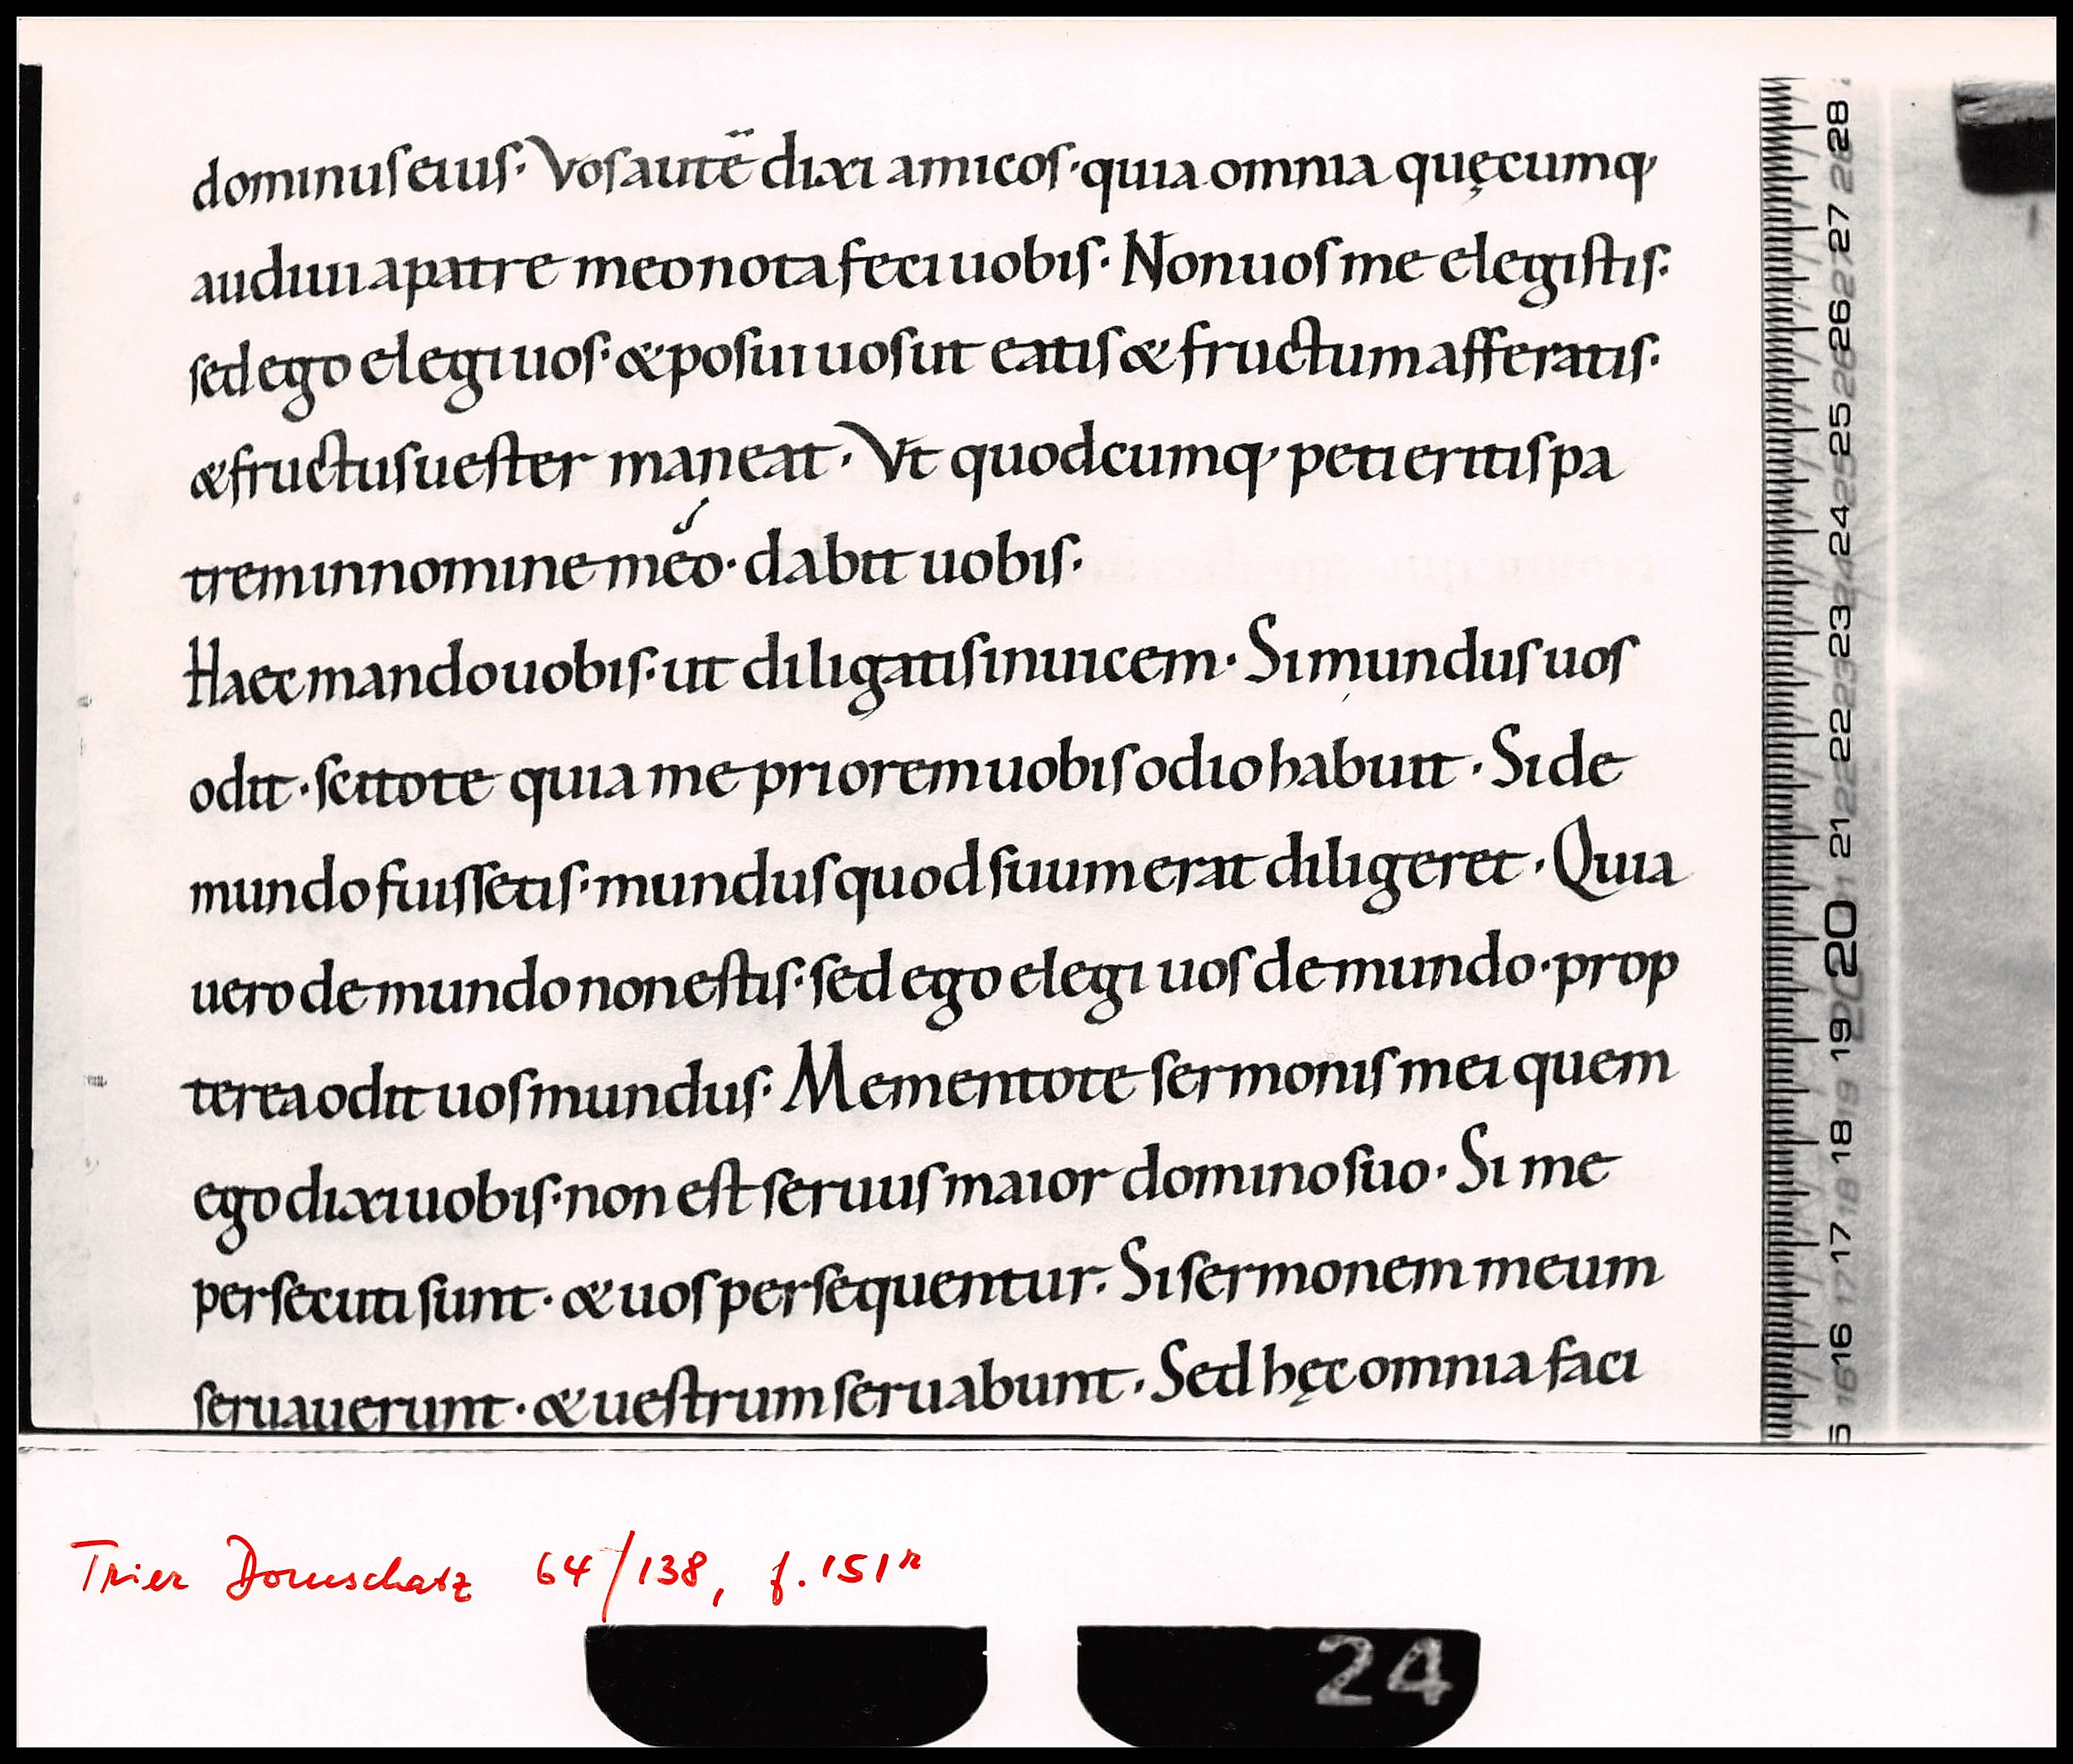 dominus eius· Vos autē dixi amicos· quia omnia quęcumq·
audiui a patre meo nota feci uobis· Non uos me elegistis·
sed ego elegi uos· & posui uos ut eatis & fructum afferatis·
& fructus uester maneat· Vt quodcumq· petieritis pa
trem in nomine méo· dabit uobis·
Haec mando uobis· ut diligatis inuicem· Si mundus uos
odit· scitote quia me priorem uobis odio habuit· Si de
mundo fuissetis· mundus quod suum erat diligeret· Quia
uero de mundo non estis· sed ego elegi uos de mundo· prop
terea odit uos mundus· Mementote sermonis mei quem
ego dixi uobis· non est seruus maior domino suo· Si me
persecuti sunt· & uos persequentur· Si sermonem meum
seruauerunt· & uestrum seruabunt· Sed hęc omnia faci
28
27
26
25
24
23
22
21
20
19
18
17
16
5
Trier Domschatz 64/138, f. 151r
24